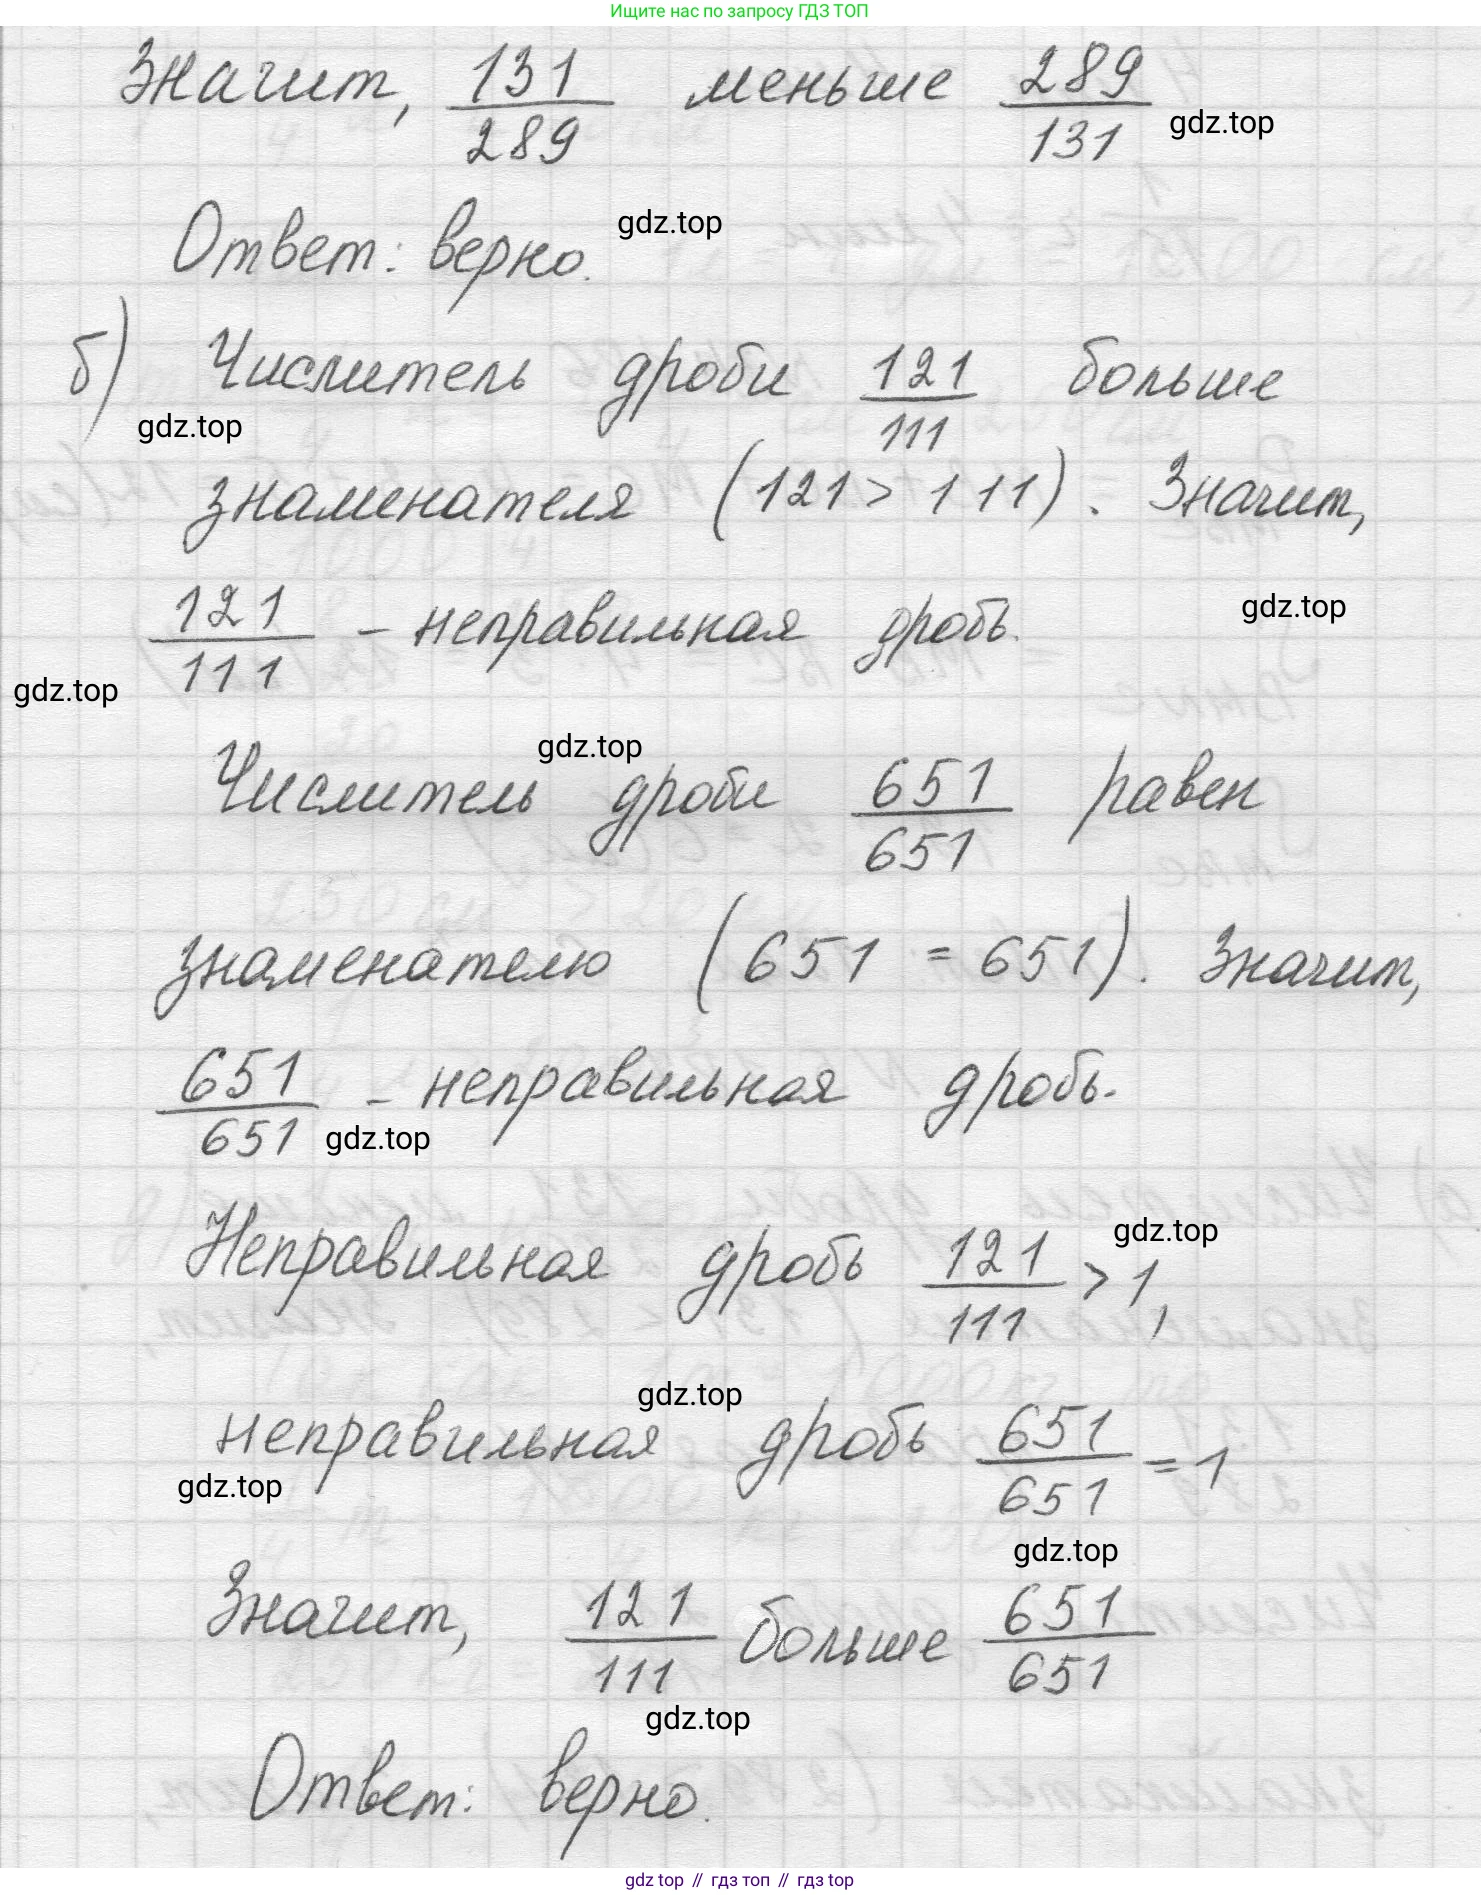 Ищите нас по запросу ГДЗ ТОП
Значит, 131/289 меньше 289/131
gdz.top
gdz.top
Ответ: верно.
б) Числитель дроби 121/111 больше
gdz.top
знаменателя (121 > 111). Значит,
gdz.top
121/111 – неправильная дробь.
gdz.top
gdz.top
Числитель дроби 651/651 равен
знаменателю (651 = 651). Значит,
651/651 – неправильная дробь.
gdz.top
gdz.top
Неправильная дробь 121/111 > 1,
gdz.top
неправильная дробь 651/651 = 1
gdz.top
gdz.top
Значит, 121/111 больше 651/651
gdz.top
Ответ: верно.
gdz top // гдз топ // гдз top